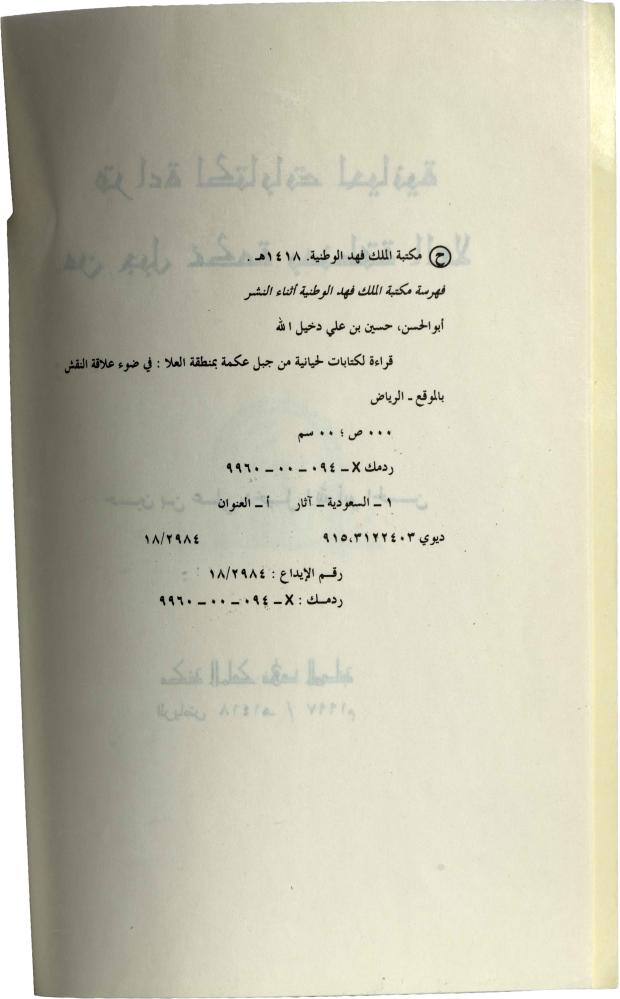 ح مكتبة الملك فهد الوطنية. ١٤١٨هـ.
فهرسة مكتبة الملك فهد الوطنية أثناء النشر
أبوالحسن، حسين بن علي دخيل الله
قراءة لكتابات لحيانية من جبل عكمة بمنطقة العلا : في ضوء علاقة النقش
بالموقع ـ الرياض
٠٠٠ ص ؛ ٠٠ سم
ردمك X ــ ٠٩٤ ــ ٠٠ ــ ٩٩٦٠
١ ــ السعودية ــ آثار أ ــ العنوان
ديوي ٩١٥،٣١٢٢٤٠٣ ١٨/٢٩٨٤
رقم الإيداع : ١٨/٢٩٨٤
ردمـك : X ــ ٠٩٤ ــ ٠٠ ــ ٩٩٦٠